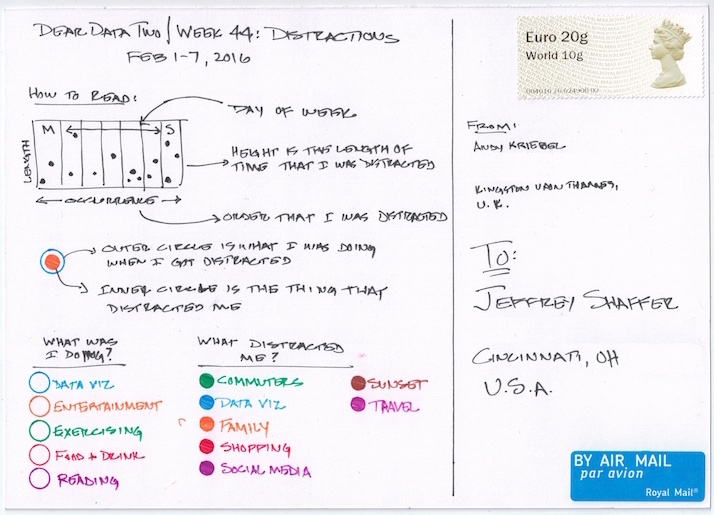 DEAR DATA TWO / WEEK 44: DISTRACTIONS
FEB 1-7, 2016
HOW TO READ:
DAY OF WEEK
M F S
LENGTH
HEIGHT IS THE LENGTH OF
TIME THAT I WAS DISTRACTED
OCCURRENCE
ORDER THAT I WAS DISTRACTED
OUTER CIRCLE IS WHAT I WAS DOING
WHEN I GOT DISTRACTED
INNER CIRCLE IS THE THING THAT
DISTRACTED ME
WHAT WAS
I DOING?
DATA VIZ
ENTERTAINMENT
EXERCISING
FOOD + DRINK
READING
WHAT DISTRACTED
ME?
COMMUTERS
DATA VIZ
FAMILY
SHOPPING
SOCIAL MEDIA
SUNSET
TRAVEL
Euro 20g
World 10g
FROM:
ANDY KRIEBEL
KINGSTON UPON THAMES,
U.K.
TO:
JEFFREY SHAFFER
CINCINNATI, OH
U.S.A.
BY AIR MAIL
par avion
Royal Mail®